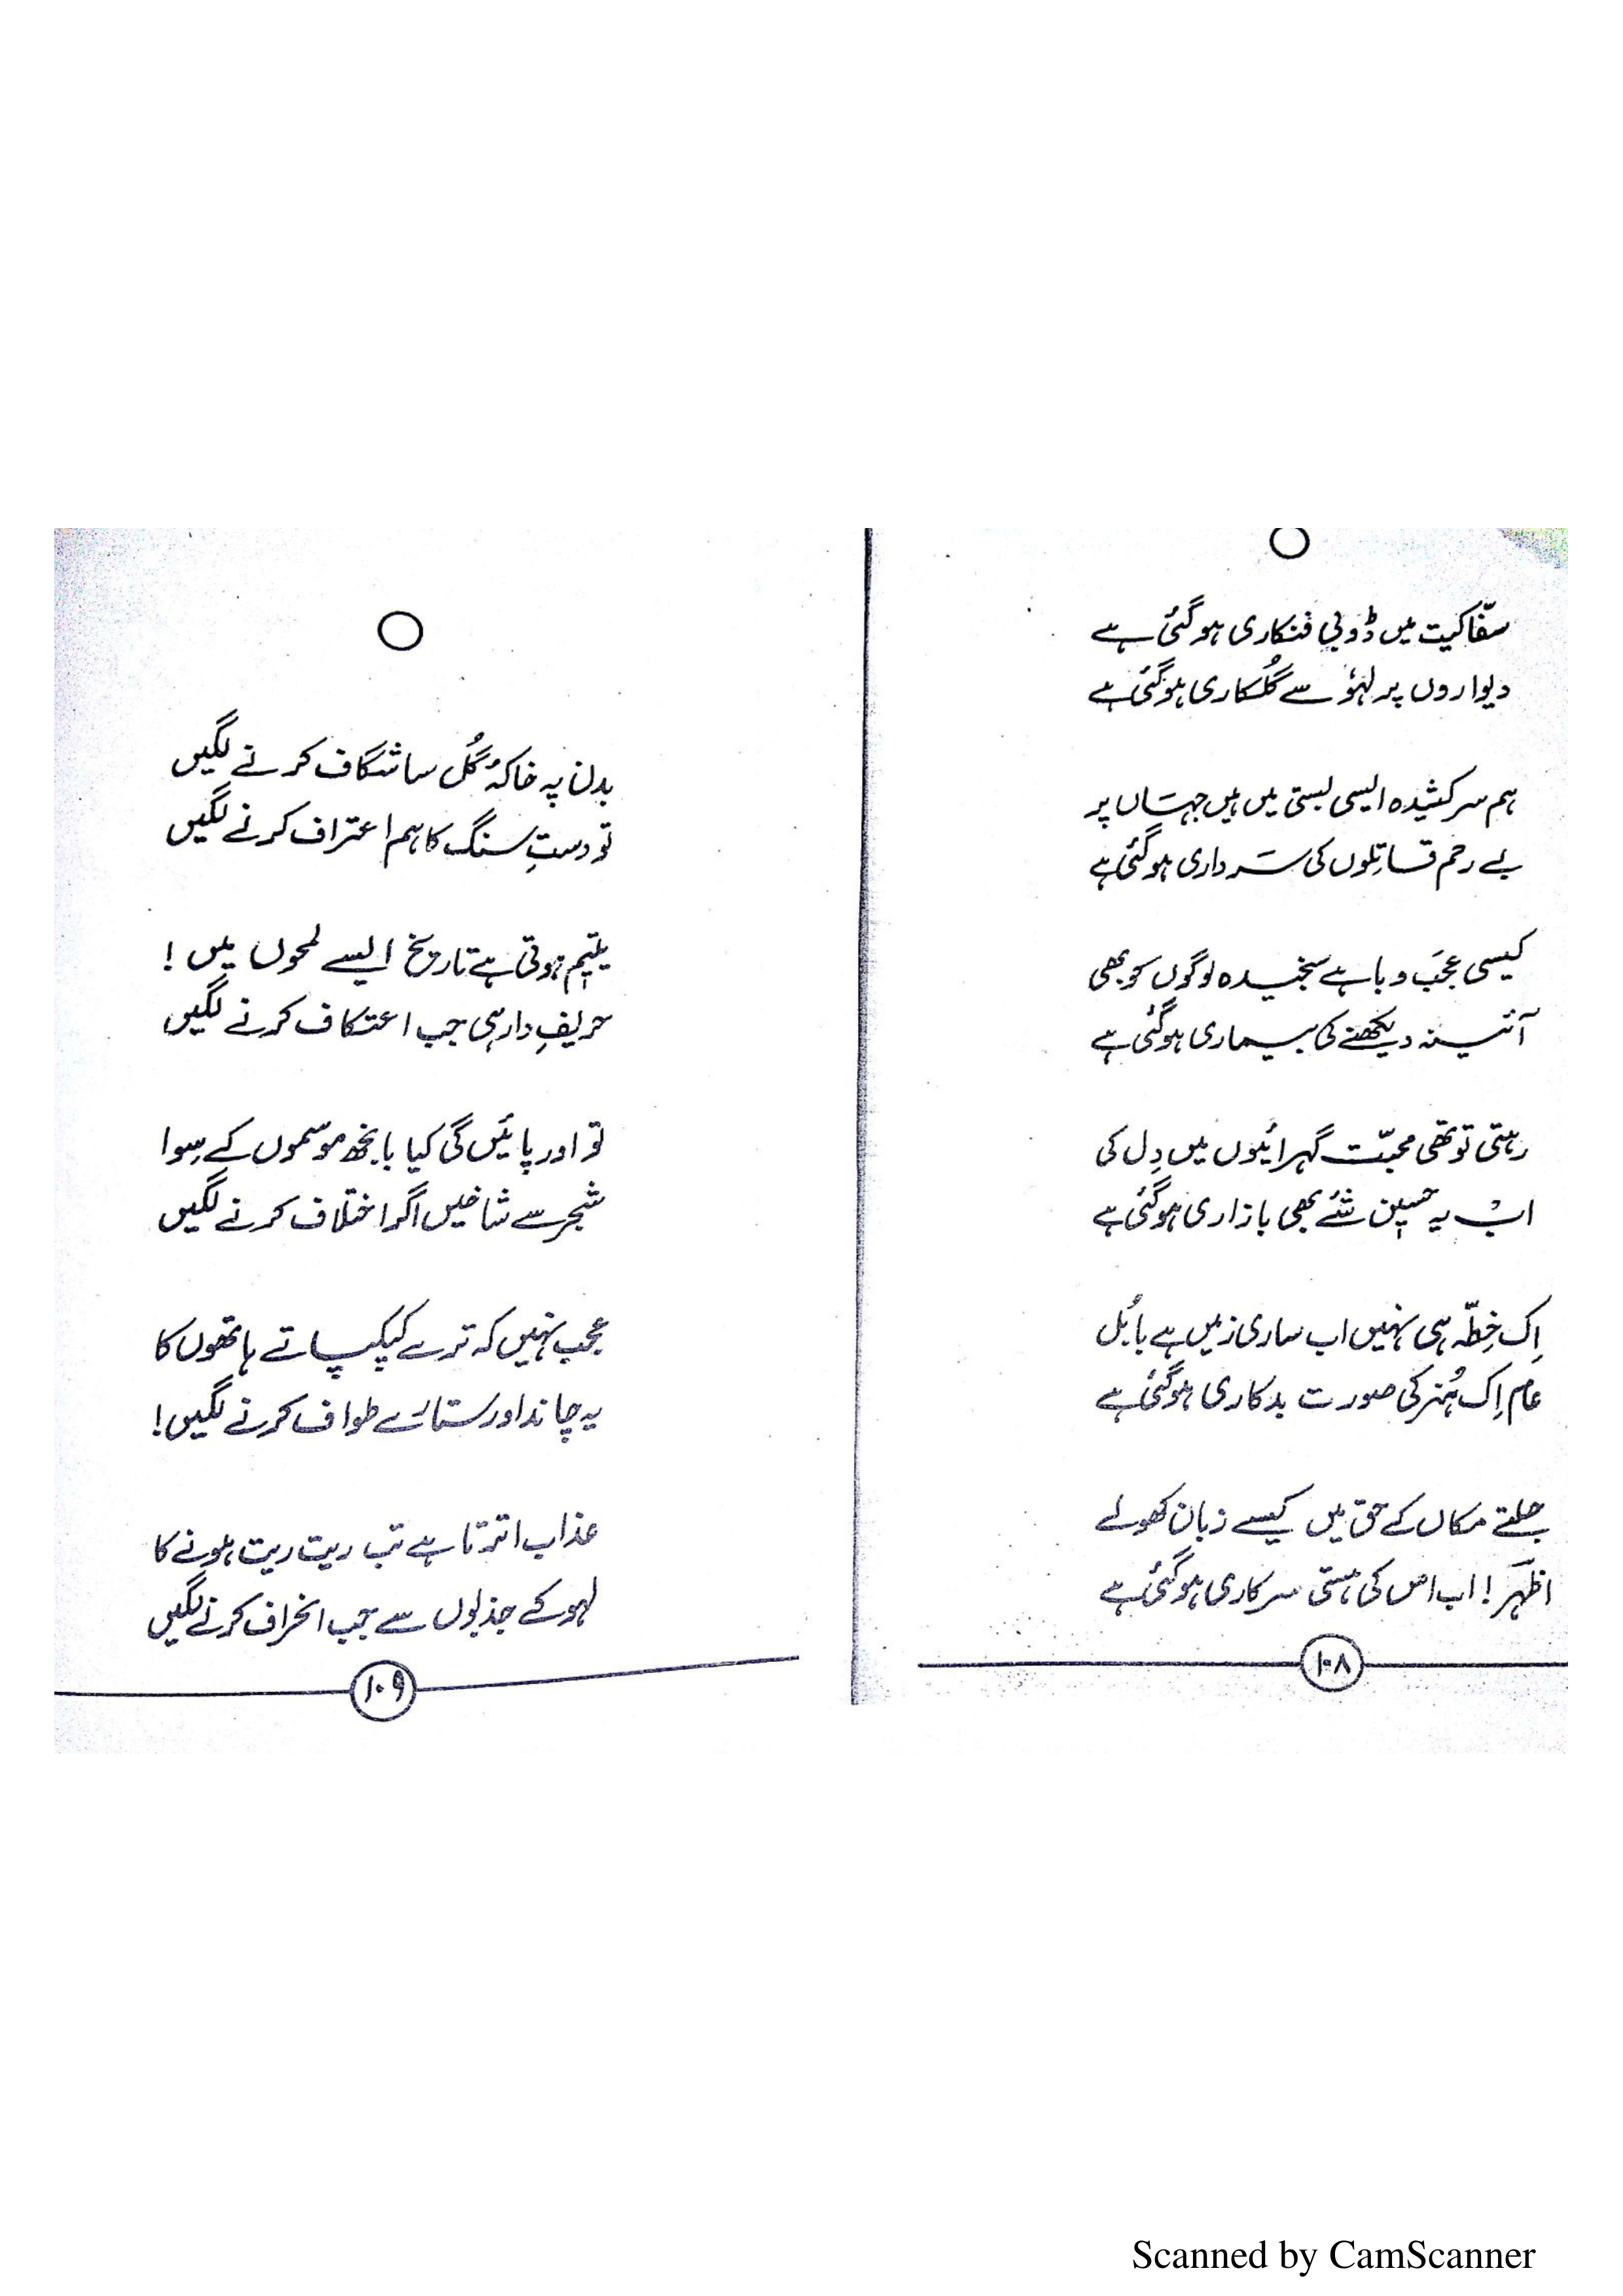 سفّاکیت میں ڈوبی فنکاری ہوگئی ہے
دیواروں پر لہوٗ سے گُلکاری ہوگئی ہے
ہم سرکشیدہ ایسی بستی میں ہیں جہاں پر
بے رحم قاتِلوں کی سَرداری ہوگئی ہے
کیسی عجَب وبا ہے سنجیدہ لوگوں کو بھی
آئینہ دیکھنے کی بیماری ہوگئی ہے
رہتی تو تھی محبّت گہرائیوں میں دِل کی
ابْ یہ حسین شئے بھی بازاری ہوگئی ہے
اِک خِطّہ ہی نہیں اب ساری زمیں ہے بابُل
عام اِک ہُنر کی صورت بدکاری ہوگئی ہے
جلتے مکاں کے حق میں کیسے زبان کھولے
اظہَر! اب اس کی ہستی سرکاری ہوگئی ہے
۱۰۸
بدن پہ خاکۂ گُل سا شگاف کرنے لگیں
تو دستِ سنگ کا ہم اعتراف کرنے لگیں
یتیم ہوتی ہے تاریخ ایسے لمحوں میں!
حریفِ دار ہی جب اعتکاف کرنے لگیں
تو اور پائیں گی کیا بانجھ موسموں کے سِوا
شجر سے شاخیں اگر اختلاف کرنے لگیں
عجب نہیں کہ ترے کپکپاتے ہاتھوں کا
یہ چاند اور ستارے طواف کرنے لگیں!
عذاب اترتا ہے تب ریت ریت ہونے کا
لہو کے جذبوں سے جب انحراف کرنے لگیں
۱۰۹
Scanned by CamScanner